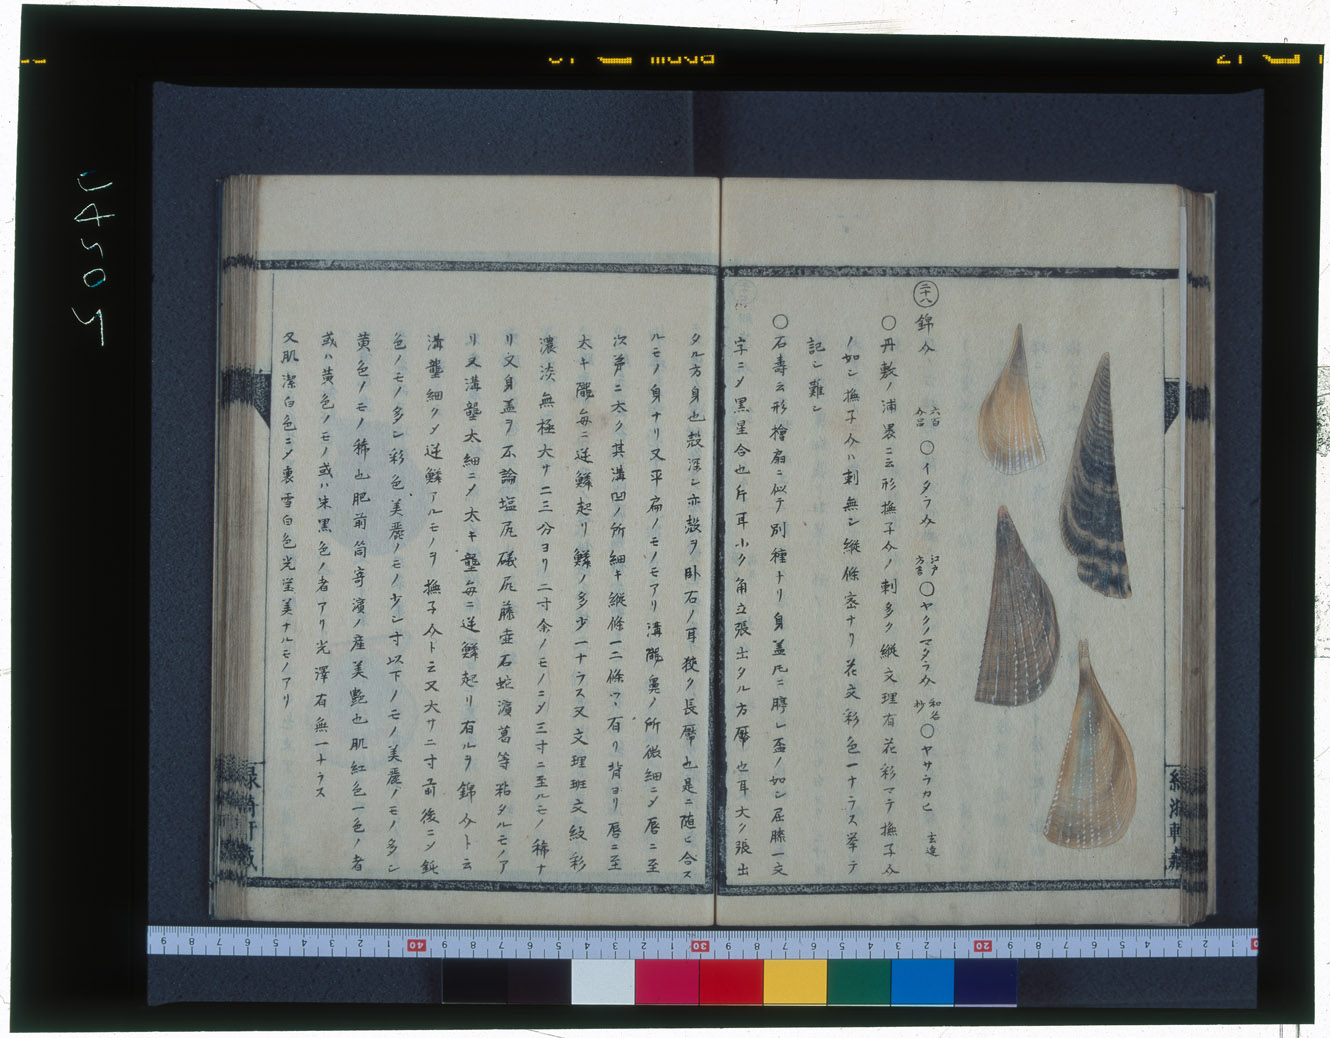 二十八
錦介 六百介品 〇イタラ介 江戸方言 〇ヤクノマタラ介 和名抄 〇ヤサラカヒ 玄達
〇丹敷ノ浦裏ニ云形撫子介ノ刺多ク縦文理有花彩マテ撫子介
ノ如シ撫子介ハ刺無シ縦條密ナリ花文彩色一ナラス挙テ
記シ難シ
〇石壽云形檜扇ニ似テ別種ナリ身蓋凡ニ脖レ盃ノ如シ屈滕一文
字ニメ黒星合也斤耳小ク角立張出タル方蓋也耳大ク張出
タル方身也殻深シ亦殻ヲ卧石ノ耳狹ク長層也是ニ随ヒ合ス
ルモノ身ナリ又平扁ノモノモアリ溝隴奥ノ所微細ニメ唇ニ至
次第ニ太ク其溝凹ノ所細キ縦條一二條ツヽ有リ背ヨリ唇ニ至
太キ隴毎ニ逆鱗起リ鱗ノ多少一ナラス又文理斑文紋彩
濃淡無極大サ二三分ヨリ二寸余ノモノニメ三寸ニ至ルモノ稀ナ
リ又身蓋ヲ不論塩尻礒尻藤壺石蛇濱葛等粘タルモノア
リ又溝壟太細ニメ太キ壟毎ニ逆鱗起リ有ルヲ錦介ト云
溝壟細クメ逆鱗アルモノヲ撫子介ト云又大サ二寸前後ニメ鈍
色ノモノ多シ彩色美麗ノモノ少シ寸以下ノモノ美麗ノモノ多シ
黄色ノモノ稀也肥前筒寄濱ノ産美艷也肌紅色一色ノ者
或ハ黄色ノモノ或ハ朱黒色ノ者アリ光澤有無一ナラス
又肌潔白色ニメ裏雪白色光瑩美ナルモノアリ